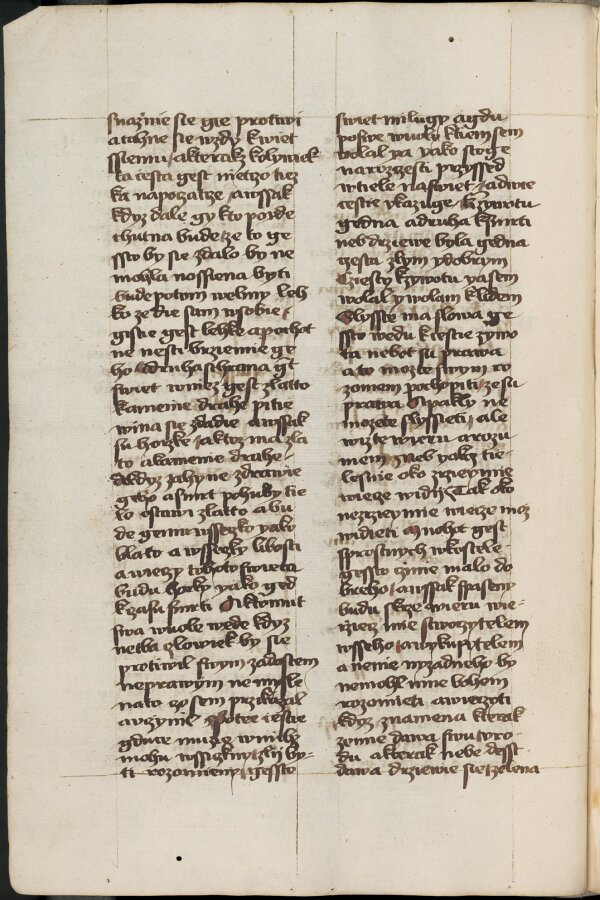 snaznie sie gie protiwi
a tahne sie wzdy k swiet
ssiemu a kterakz kolywiek
ta cesta gest nietczo tiez
ka napoczatcze a wssak
kdyz dale gy kto poide
chutna bude ze to ge
ssto by sie zdalo by ne
mohla nossiena byti
bude potom welmy leh
ko ze die sam w sobie
gistie gest lehke a pochot
ne nesti brziemie ge
ho druha schrana gt
swiet w niez gest zlatto
kamenie drahe pitie
wina sie zdadie a wssak
su horzke a ktoz ma zla
to a kamenie drahe
a kdyz zahyne zdrawie
geho a smrt pohuby tie
lo ostawi zlatto a bu
de gemu wsseczko yako
blato a wssieczky libosti
a wieczy tohoto swieta
budu horzky yako ged
k zasu smrti
swa wuobe wede kdyz
netba czlowiek by sie
protiwil swym zadostem
neprawym ne mysle
na to czo sem przikazal
a uczynil Potee cestie
gduce muzie w nitbz
mohu wssiczkny zlij by
ti rozomieny gessto
swiet milugy a gdu
po swe wuoly k tiem sem
wolal ya yako stoge
na rozcesti przyssed
w tiele na swiet a dwie
cestie ukazuge k zywotu
gedna a druha k smrti
neb drziewe byla gedna
cesta zlym y dobrym
Cziesty k zywotu ya sem
wolal y wolam k lidem
Slysste ma slowa ge
ssto wedu k cestie zywo
ta nebot su prawa
a to mozte swym ro
zomem pochopiti ze su
prawa Pakly ne
mozete slysseti ale
wizte wieru a rozu
mem neb yakz tie
lesne oko zrzeymie
wiecze widij Tak oko
nezrzeymie wiecze moz
widieti mnohot gest
sprostnych w kostele
gessto czinie malo do
breho a wssak spaseny
budu skrze wieru wie
rziecz mie stworzytelem
wsseho a wykupitelem
a nenie wzadneho by
nemohl mne bohem
rozomieti a wierzyti
kdyz znamena kterak
zemie dawa swu uro
du a kterak nebe desst
dawa drziewie sie zelena